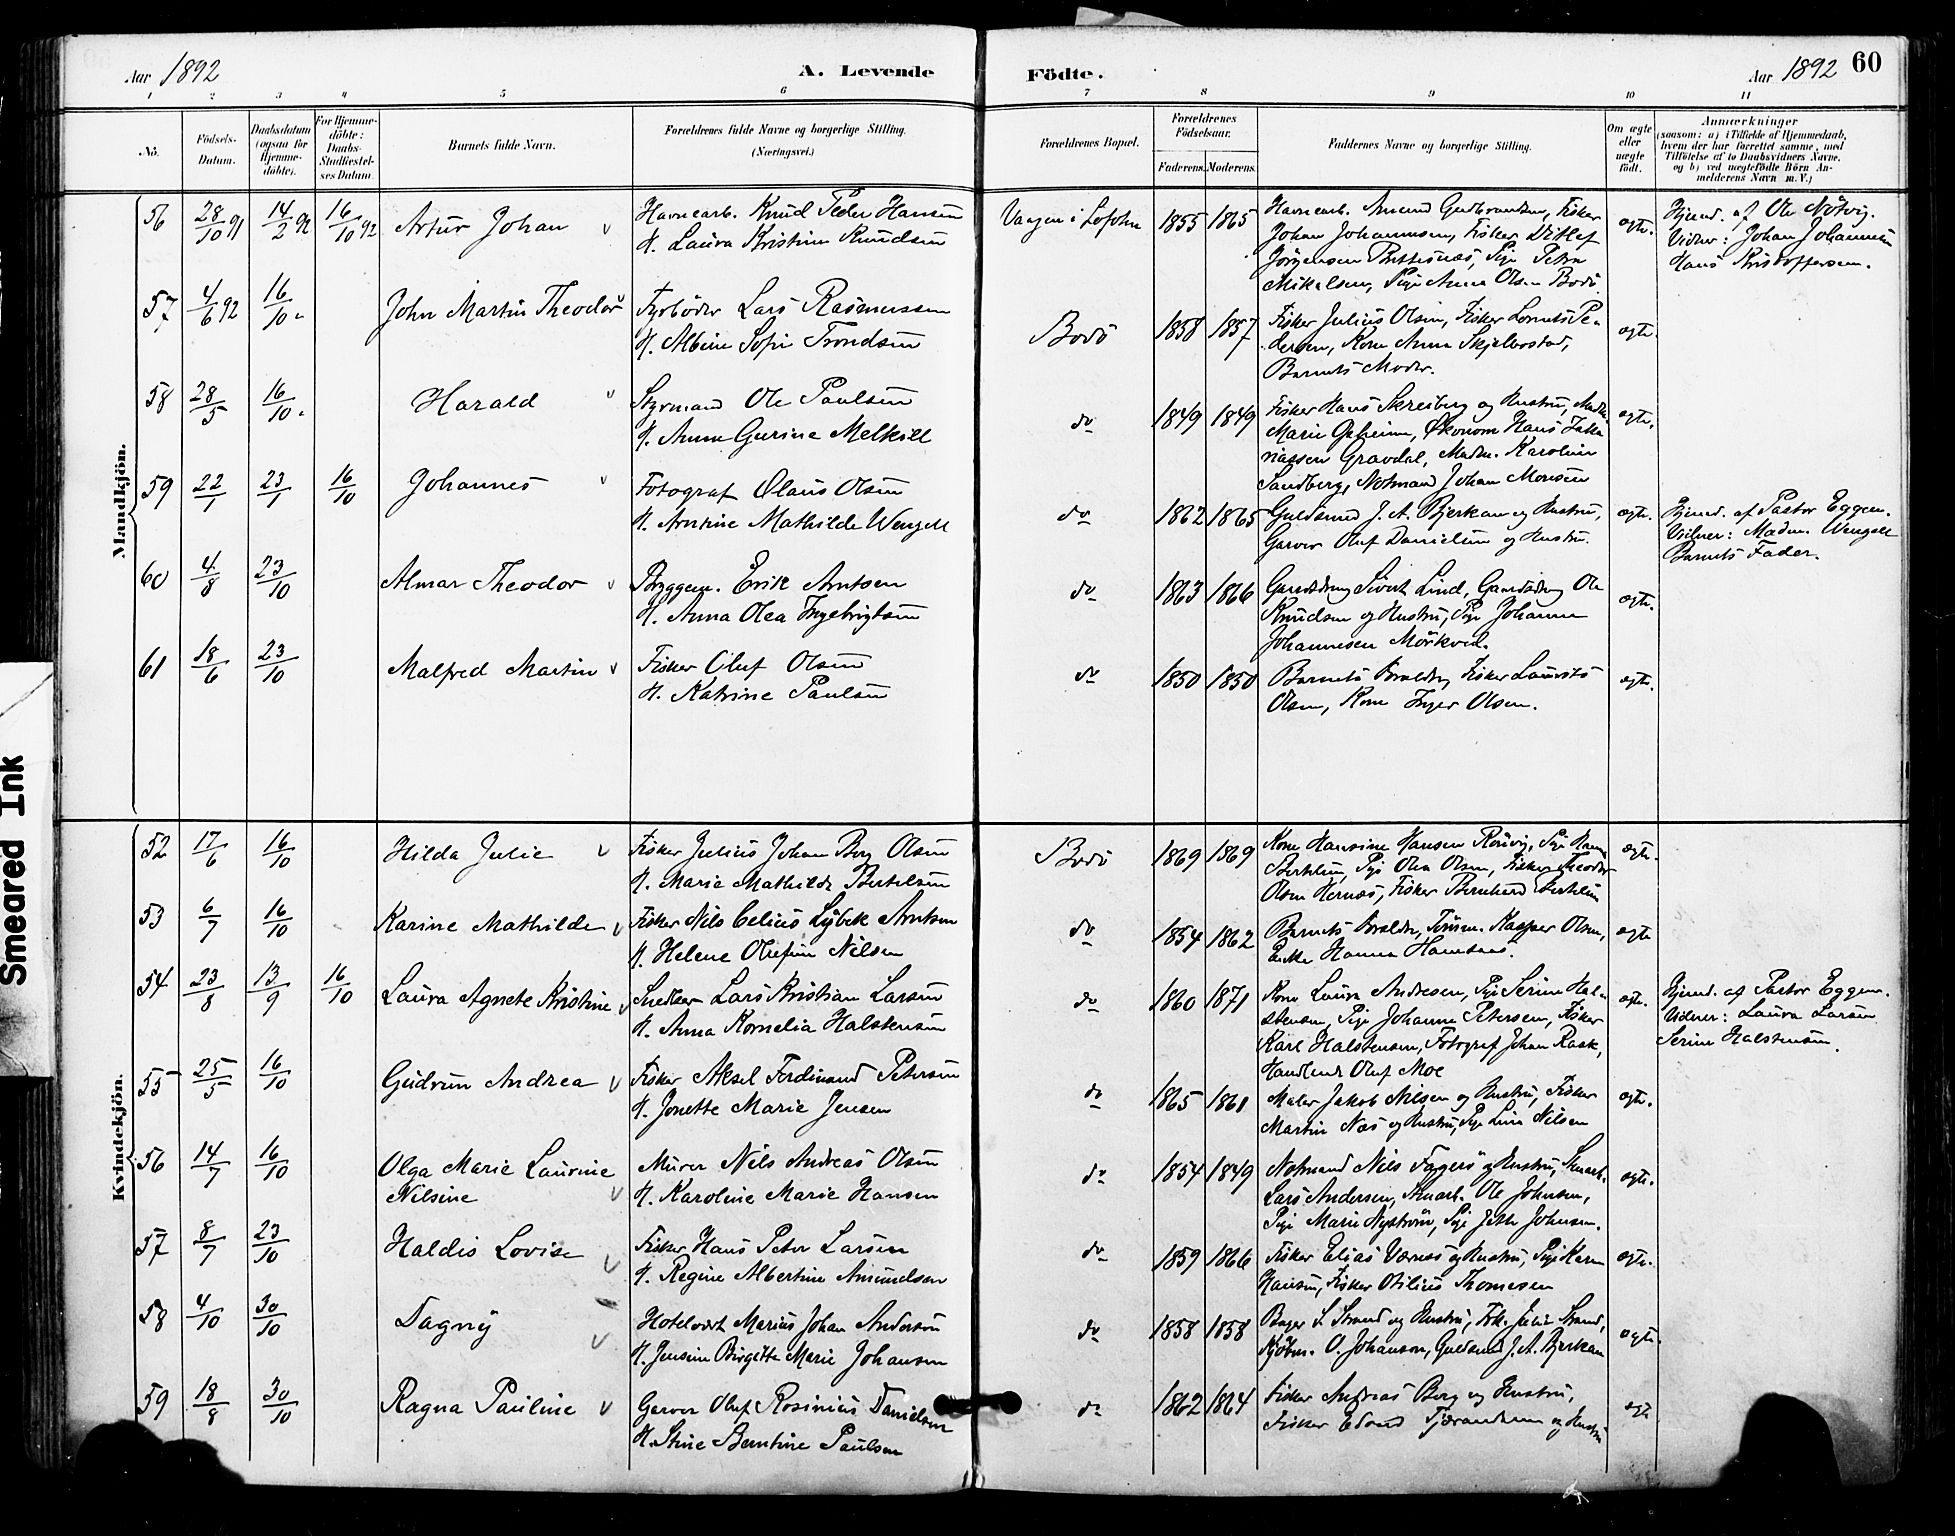 Aar 1892
A. Levende
Födte.
Aar 1892
60
1 2 3 4 5 6 7 8 9 10 11
No.
Födsels-
Datum.
Daabsdatum
(ogsaa for
Hjemme-
döbte).
For Hjemme-
döbte:
Daabs-
Stadfæstel-
ses Datum.
Barnets fulde Navn.
Forældrenes fulde Navne og borgerlige Stilling.
(Næringsvei.)
Forældrenes Bopæl.
Forældrenes
Födselsaar.
Faderens. Moderens.
Faddernes Navne og borgerlige Stilling.
Om ægte
eller
uægte
födt.
Anmærkninger
(saasom: a) i Tilfælde af Hjemmedaab,
hvem der har forrettet samme, med
Tilföielse af to Daabsvidners Navne,
og b) ved uægtefödte Börn An-
melderens Navn m. V.)
Mandkjön.
56 28/10 91 14/2 92 16/10 92 Artur Johan
Havnearb. Knud Peder Hansen
H. Laura Kristine Knudsen
Vaagen i Lofoten 1855 1865
Havnearb. Amund Gudbrandsen, Fisker
Johan Johannesen, Fisker Ditlef
Jörgensen, Pige Petra
Mikalsen, Pige Anna Olsen Bodö
ægte.
Hjemd. af Ole Nötvig.
Vidner: Johan Johannesen
Hans Kristoffersen.
57 4/6 92 16/10 " John Martin Theodor
Fyrböder Lars Rasmussen
H. Albine Sofie Trondsen
Bodö 1858 1857
Fisker Julius Olsen, Fisker Lorents Pe-
dersen, Kone Anna Skjelbostad,
Barnets Moder.
ægte.
58 28/5 16/10 " Harald
Styrmand Ole Paulsen
H. Anne Gurine Melkild
do 1849 1849
Fisker Hans Skreiberg og Hustru, Madm.
Marie Opheim, Økonom Hans Zaka-
riassen Gravdal, Madm. Karoline
Sandberg, Notmand Johan Monsen
ægte.
59 22/1 23/1 16/10 Johannes
Fotograf Olaus Olsen
H. Arntine Mathilde Wengell
do 1862 1865
Guldsmed J. A. Bjerkan og Hustru,
Garver Oluf Danielsen og Hustru.
ægte.
Hjemd. af Pastor Eggen.
Vidner: Madm. Wengell
Barnets Fader.
60 4/8 23/10 Almar Theodor
Byggem. Erik Arntsen
H. Anna Olea Ingebrigtsen
do 1863 1866
Gaardsdreng Sivert Lind, Gaardsdreng Ole
Knudsen og Hustru, Pige Johanna
Johannesen Mörkved.
ægte.
61 18/6 23/10 Malfred Martin
Fisker Oluf Olsen
H. Katrine Paulsen
do 1850 1850
Barnets Forældre, Fisker Laurits
Olsen, Kone Inger Olsen.
ægte.
Kvindekjön.
52 17/6 16/10 Hilda Julie
Fisker Julius Johan Berg Olsen
H. Marie Mathilde Bertelsen
Bodö 1869 1869
Kone Hansine Hansen Rönvig, Pige Hanna
Bertelsen, Pige Olea Olsen, Fisker Theodor
Olsen Hernæs, Fisker Bernhard Bertelsen
ægte.
53 6/7 16/10 Karine Mathilde
Fisker Nils Celius Lybek Arntsen
H. Helene Olufine Nilsen
do 1854 1862
Barnets Forældre, Tömm. Kasper Olsen,
Enke Hanna
ægte
54 23/8 13/9 16/10 Laura Agnete Kristine
Snedker Lars Kristian Larsen
H. Anna Kornelia Halstensen
do 1860 1871
Kone Laura Andresen, Pige Serine Hal-
stensen, Pige Johanne Petersen, Fisker
Karl Halstensen, Fotograf Johan Rask,
Handlende Oluf Moe
ægte.
Hjemd. af Pastor Eggen.
Vidner: Laura Larsen
Serine Halstensen.
55 25/5 16/10 Gudrun Andrea
Fisker Aksel Ferdinand Petersen
H. Jonette Marie Jensen
do 1865 1861
Maler Jakob Nilsen og Hustru, Fisker
Martin Næs og Hustru, Pige Lina Nilsen
ægte.
56 14/7 16/10 Olga Marie Laurine
Nilsine
Murer Nils Andreas Olsen
H. Karoline Marie Hansen
do 1854 1849
Notmand Nils Fageraa og Hustru,
Lars Andersen, Ole Johnsen,
Pige Marie Nyström, Pige Jette Johnsen.
ægte.
57 8/7 23/10 Haldis Lovise
Fisker Hans Peter Larsen
H. Regine Albertine Amundsen
do 1859 1866
Fisker Elias Værnes og Hustru, Pige Karen
Hansen, Fisker Otilius Thomesen
ægte.
58 4/10 30/10 Dagny
Hotelvært Marius Johan Andersen
H. Jensine Birgitte Marie Johansen
do 1858 1858
Bager S. Strand og Hustru, Frk. Julie Strand,
Kjöbm. O. Johanson, Guldsmed J. A. Bjerkan
ægte.
59 18/8 30/10 Ragna Pauline
Garver Oluf Rosinius Danielsen
H. Stine Berntine Paulsen
do 1862 1864
Fisker Andreas Berg og Hustru,
Fisker Edvard Tjærandsen og Hustru
ægte
Smeared Ink